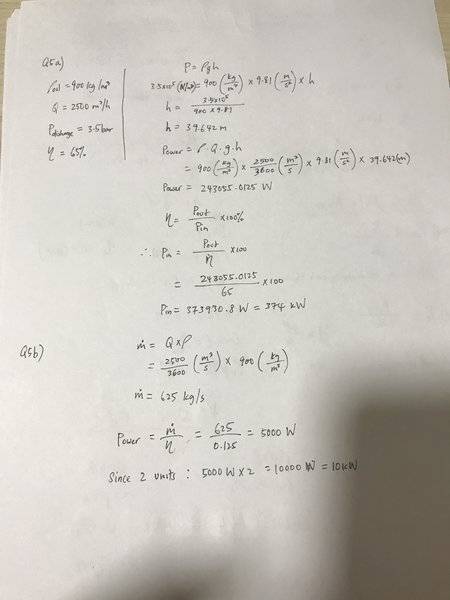 Q5a)
ρoil = 900 kg/m³
Q = 2500 m³/h
Pdischarge = 3.5 bar
η = 65%
P = ρgh
3.5x10⁵ (N/m²) = 900 (kg/m³) x 9.81 (m/s²) x h
h = 3.5x10⁵ / 900 x 9.81
h = 39.642 m
Power = ρ. Q. g. h
= 900 (kg/m³) x 2500/3600 (m³/s) x 9.81 (m/s²) x 39.642 (m)
Power = 243055.0125 W
η = Pout/Pin x 100%
∴ Pin = Pout/η x 100
= 243055.0125/65 x 100
Pin = 373930.8 W = 374 kW
Q5b)
ṁ = Q x ρ
= 2500/3600 (m³/s) x 900 (kg/m³)
ṁ = 625 kg/s
Power = ṁ/η = 625/0.125 = 5000 W
Since 2 units : 5000 W x 2 = 10000 W = 10 kW